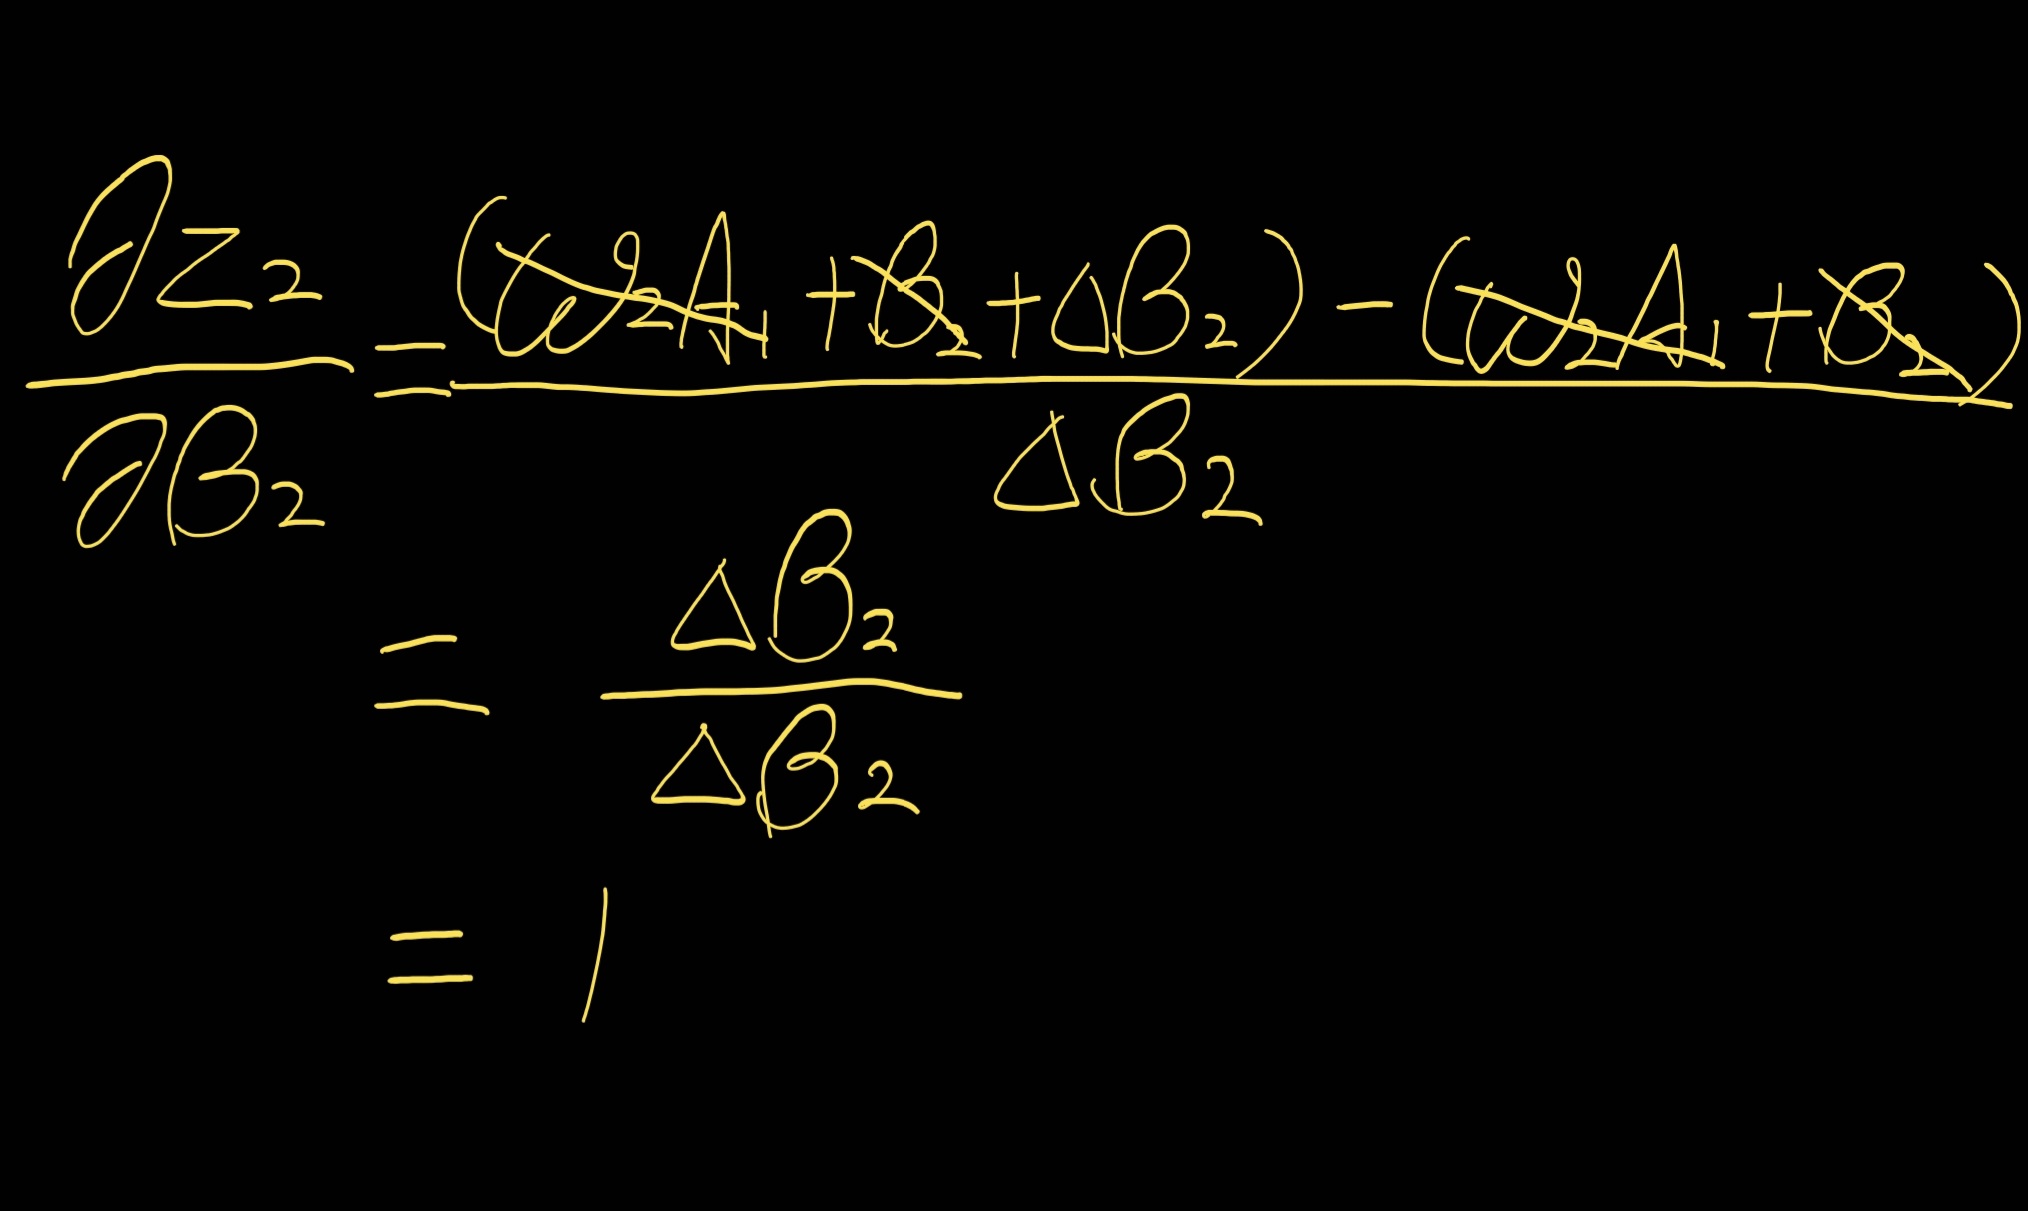 ∂Z₂/∂B₂ = ((W₂A₁ + B₂ + ΔB₂) - (W₂A₁ + B₂))/ΔB₂
= ΔB₂/ΔB₂
= 1